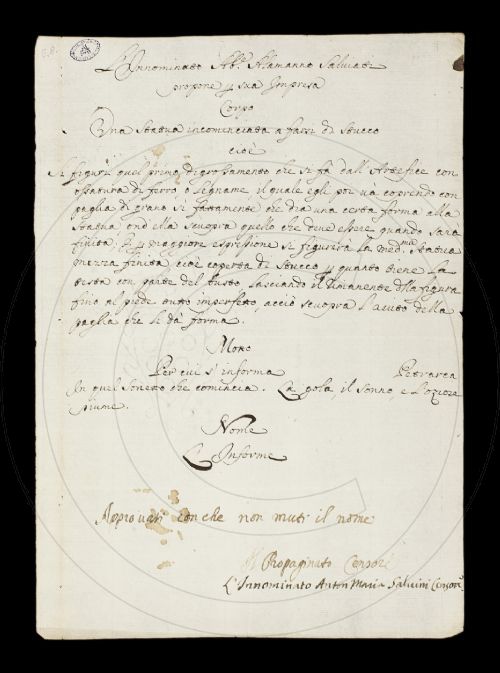 L'Innominato Ab.e Alamanno Salviati
propone p sua Impresa
Corpo
Una Statua incominciata a farsi di stucco
cioè
Si figuri quel primo digrossamento che si fà dall'Artefice con
ossatura di ferro o legname il quale egli poi va coprendo con
paglia di grano si fattamente che dia una certa forma alla
statua, ond'ella scuopra quello che deve essere quando sarà
finita. E p maggiore espressione si figurirà la med.ma statua
mezza finita cioè coperta di stucco p quanto tiene la
testa con parte del busto lasciando il rimanente della figura
fino al piede tutto imperfetto, acciò scuopra l'aiuto della
paglia che li dà forma.
Moto
Per cui s'informa Petrarca
In quel Sonetto che comincia. La gola il sonno e l'oziose
piume.
Nome
L'Informe
Approvati con che non muti il nome
Il Propaginato Censore
L'Innominato Anton Maria Salvini Censore